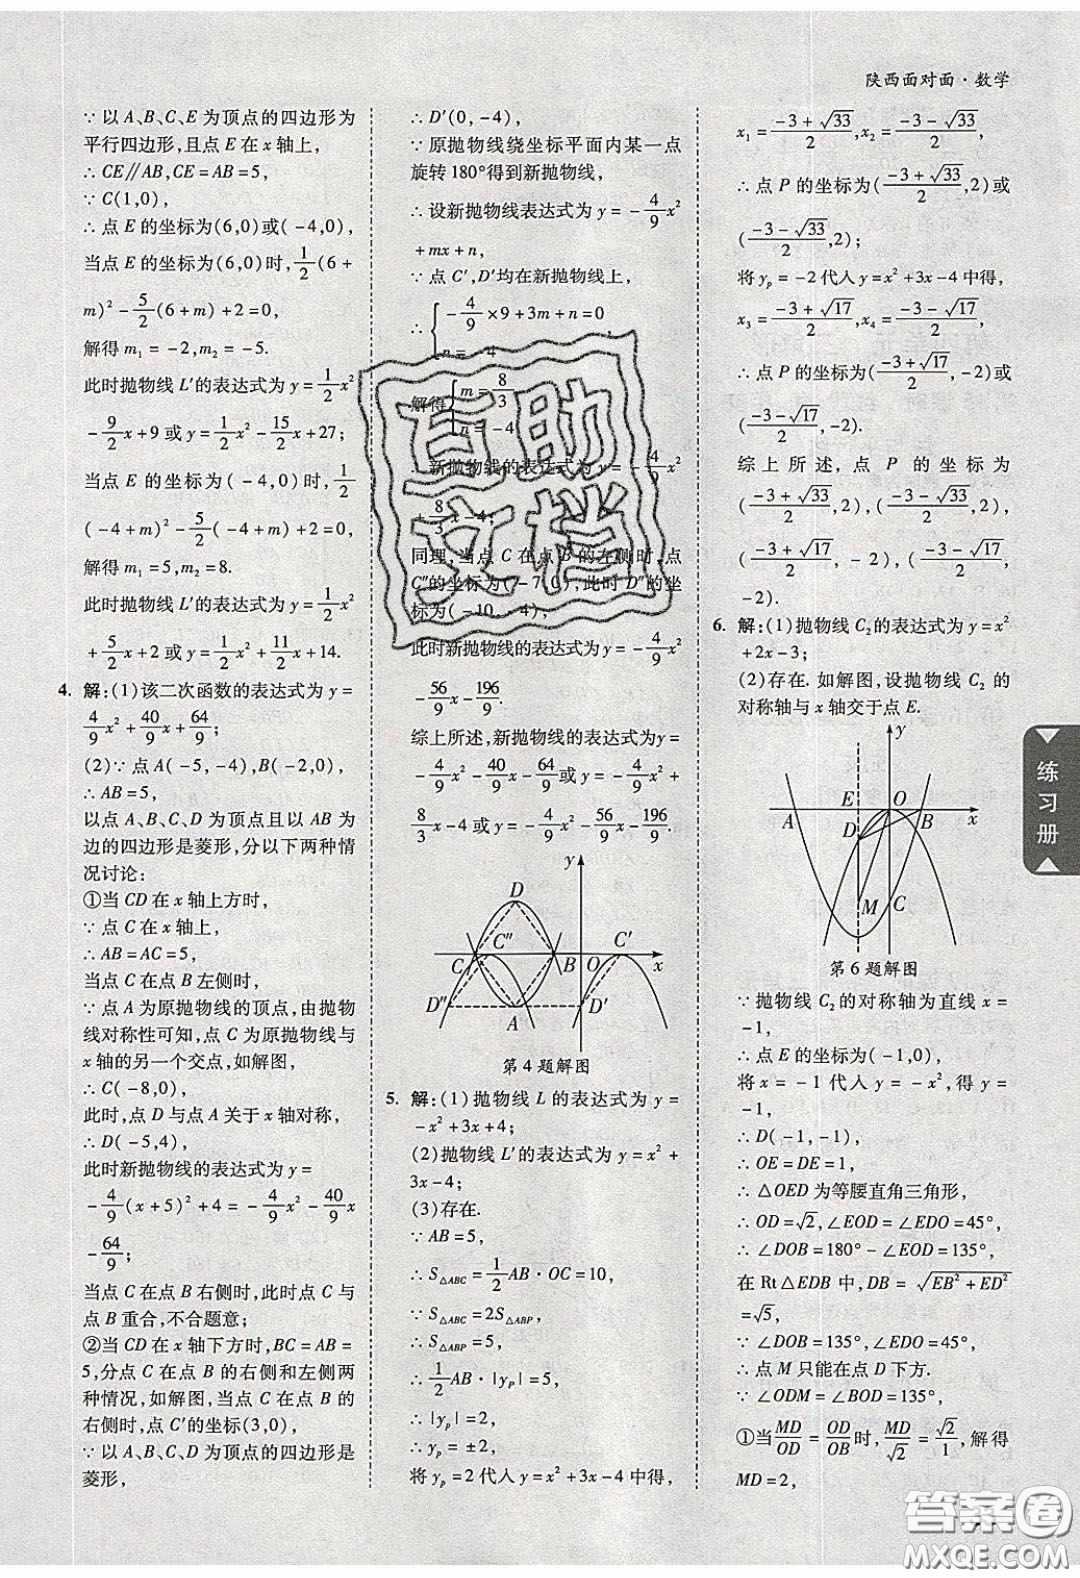 陕西面对面·数学
∵以A、B、C、E为顶点的四边形为
平行四边形,且点E在x轴上,
∴CE∥AB,CE=AB=5,
∵C(1,0),
∴点E的坐标为(6,0)或(-4,0),
当点E的坐标为(6,0)时,1/2(6+
m)²-5/2(6+m)+2=0,
解得m₁=-2,m₂=-5.
此时抛物线L'的表达式为y=1/2x²
-9/2x+9或y=1/2x²-15/2x+27;
当点E的坐标为(-4,0)时,1/2
(-4+m)²-5/2(-4+m)+2=0,
解得m₁=5,m₂=8.
此时抛物线L'的表达式为y=1/2x²
+5/2x+2或y=1/2x²+11/2x+14.
4. 解:(1)该二次函数的表达式为y=
4/9x²+40/9x+64/9;
(2)∵点A(-5,-4),B(-2,0),
∴AB=5,
以点A、B、C、D为顶点且以AB为
边的四边形是菱形,分以下两种情
况讨论:
①当CD在x轴上方时,
∵点C在x轴上,
∴AB=AC=5,
当点C在点B左侧时,
∵点A为原抛物线的顶点,由抛物
线对称性可知,点C为原抛物线与
x轴的另一个交点,如解图,
∴C(-8,0),
此时,点D与点A关于x轴对称,
∴D(-5,4),
此时新抛物线的表达式为y=
-4/9(x+5)²+4=-4/9x²-40/9x
-64/9;
当点C在点B右侧时,此时点C与
点B重合,不合题意;
②当CD在x轴下方时,BC=AB=
5,分点C在点B的右侧和左侧两
种情况,如解图,当点C在点B的
右侧时,点C'的坐标(3,0),
∵以A、B、C、D为顶点的四边形是
菱形,
∴D'(0,-4),
∵原抛物线绕坐标平面内某一点
旋转180°得到新抛物线,
∴设新抛物线表达式为y=-4/9x²
+mx+n,
∵点C',D'均在新抛物线上,
∴{-4/9×9+3m+n=0
n=-4
解得{m=8/3
n=-4
∴新抛物线的表达式为y=-4/9x²
+8/3x-4;
同理,当点C在点B的左侧时,点
C″的坐标为(-7,0),此时D″的坐
标为(-10,-4),
此时新抛物线的表达式为y=-4/9x²
-56/9x-196/9.
综上所述,新抛物线的表达式为y=
-4/9x²-40/9x-64/9或y=-4/9x²+
8/3x-4或y=-4/9x²-56/9x-196/9.
y
D
C
C″
B
O
C'
x
D″
A
D'
第4题解图
5. 解:(1)抛物线L的表达式为y=
-x²+3x+4;
(2)抛物线L'的表达式为y=x²+
3x-4;
(3)存在.
∵AB=5,
∴S△ABC=1/2AB·OC=10,
∵S△ABC=2S△ABP,
∴S△ABP=5,
∴1/2AB·|yP|=5,
∴|yP|=2,
∴yP=±2,
将yP=2代入y=x²+3x-4中得,
x₁=(-3+√33)/2,x₂=(-3-√33)/2,
∴点P的坐标为((-3+√33)/2,2)或
((-3-√33)/2,2);
将yP=-2代入y=x²+3x-4中得,
x₃=(-3+√17)/2,x₄=(-3-√17)/2,
∴点P的坐标为((-3+√17)/2,-2)或
((-3-√17)/2,-2).
综上所述,点P的坐标为
((-3+√33)/2,2),((-3-√33)/2,2)或
((-3+√17)/2,-2),((-3-√17)/2,
-2).
6. 解:(1)抛物线C₂的表达式为y=x²
+2x-3;
(2)存在.如解图,设抛物线C₂的
对称轴与x轴交于点E.
y
A
E
O
B
x
D
M
C
第6题解图
∵抛物线C₂的对称轴为直线x=
-1,
∴点E的坐标为(-1,0),
将x=-1代入y=-x²,得y=
-1,
∴D(-1,-1),
∴OE=DE=1,
∴△OED为等腰直角三角形,
∴OD=√2,∠EOD=∠EDO=45°,
∴∠DOB=180°-∠EOD=135°,
在Rt△EDB中,DB=√(EB²+ED²)
=√5,
∵∠DOB=135°,∠EDO=45°,
∴点M只能在点D下方.
∵∠ODM=∠BOD=135°,
①当MD/OD=OD/OB时,MD/√2=√2/1,解得
MD=2,
练习册
百助
文档
答案圈
MXQE.COM